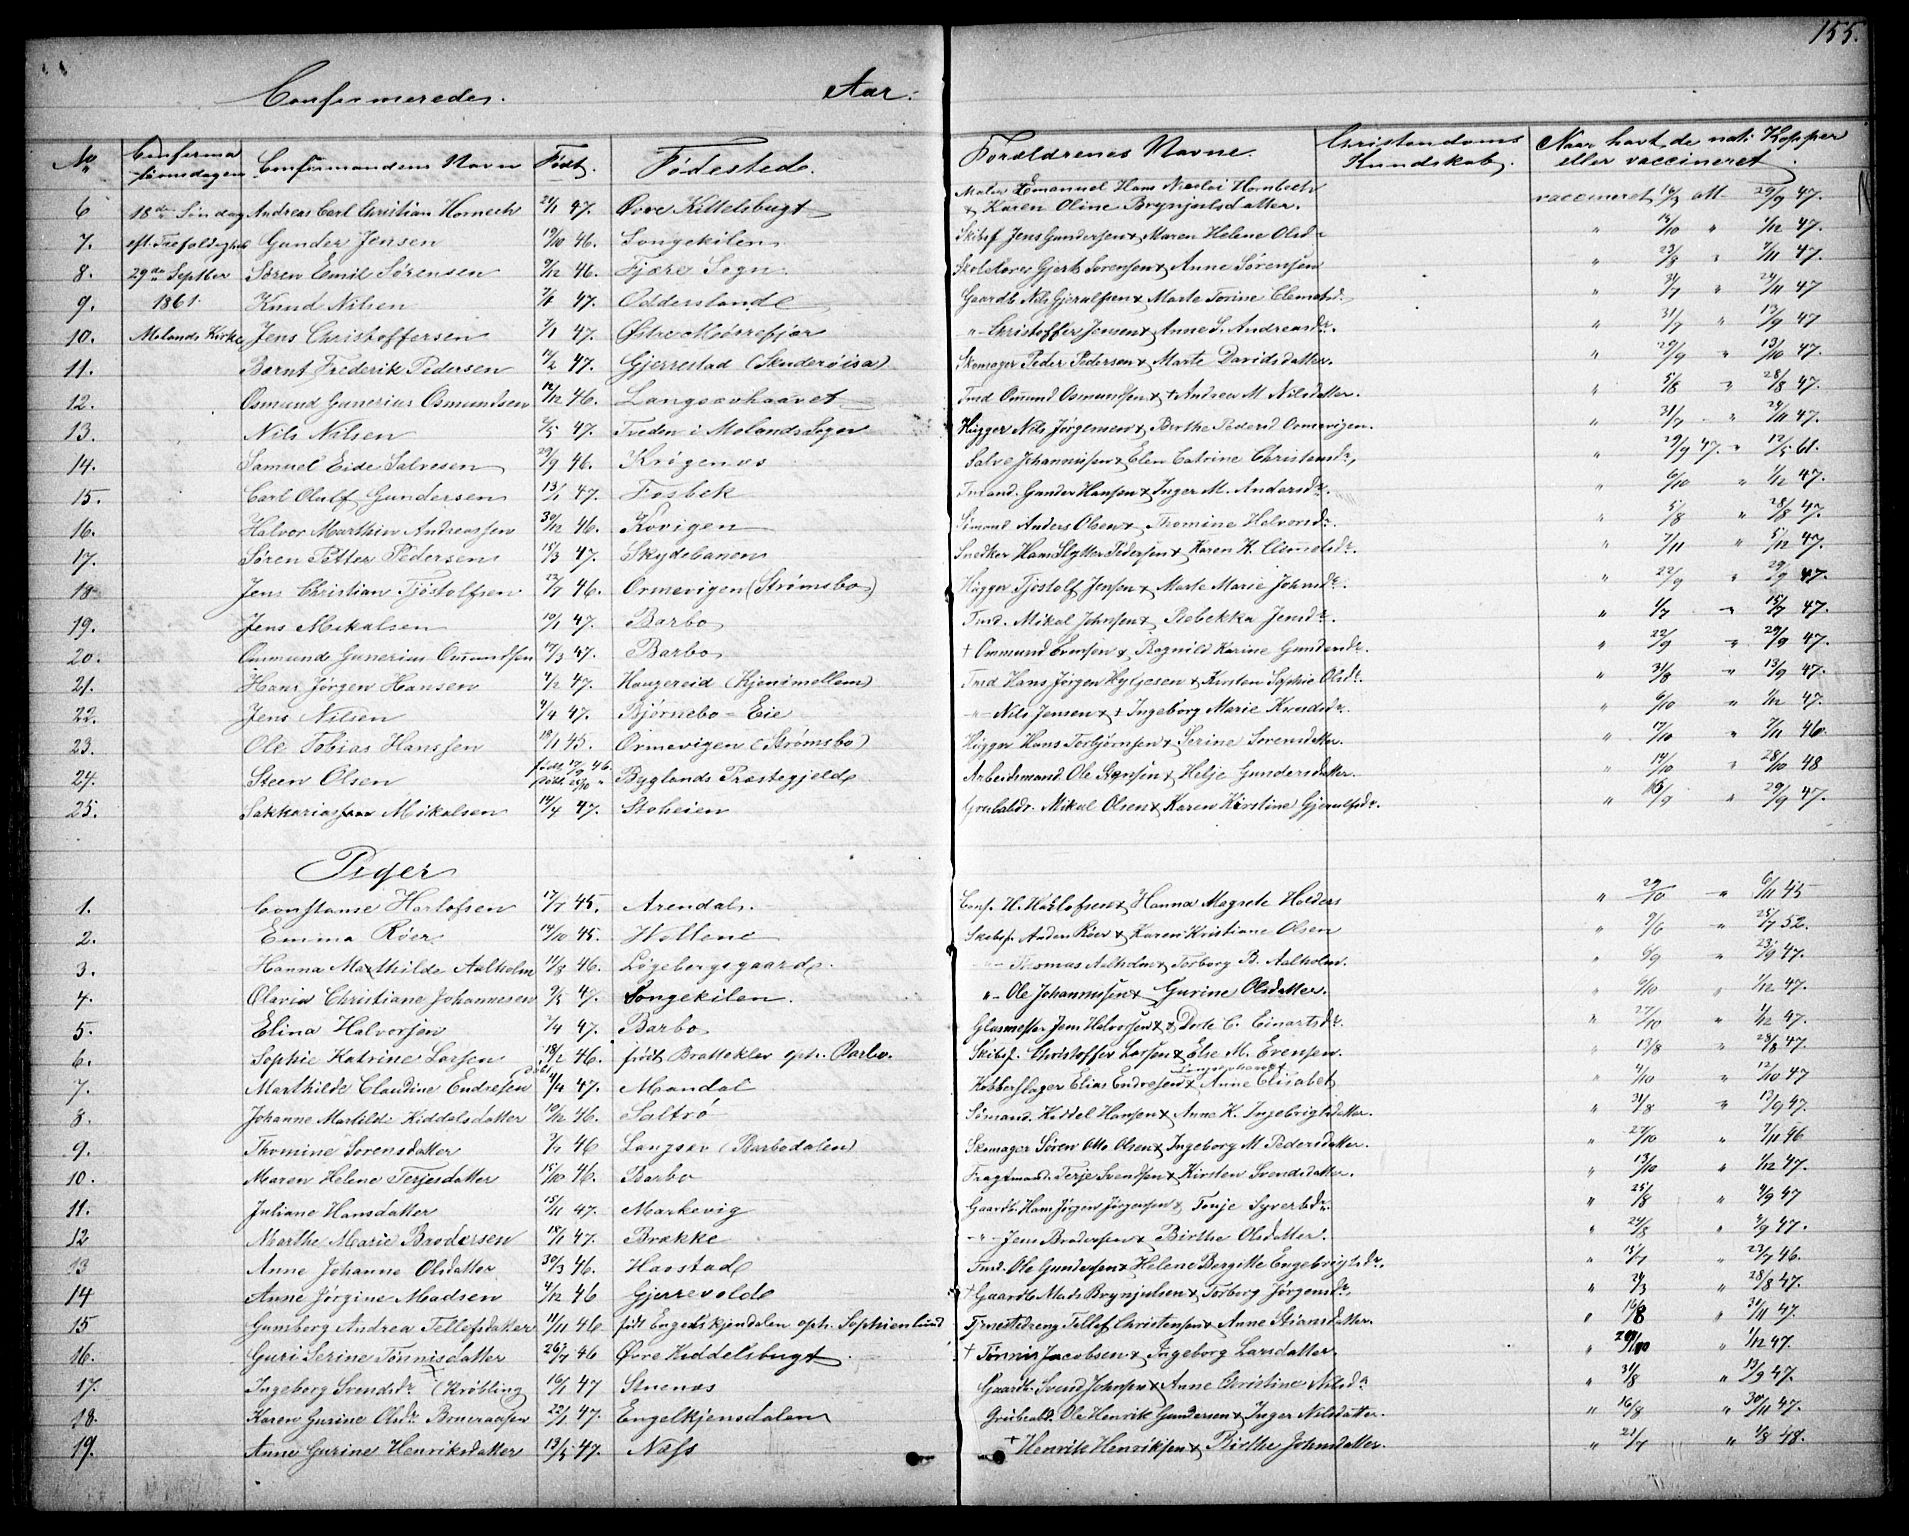 155.
Confirmerede. Aar:
No Confirmationsdagen Confirmandens Navn Født. Fødested. Forældrenes Navne. Christendoms Kundskab. Naar havt de nat: Kopper eller vaccineret
6 18de Søndag Andreas Carl Christian Hornech 47. Øvre Kittelsbugt Maler Emanuel Hans Nicolai Hornbech & Karen Oline Brynjulsdatter. vaccineret 16/3 att 29/9 47.
7. eft. Trefoldighed Gunder Jensen 19/10 46. Songekilen Skibsf Jens Gundersen & Maren Helene Olsdr " 13/10 " 1/12 47.
8. 29de Septber Søren Emil Sørensen 9/12 46. Fjære Sogn Skolelærer Gjert Sørensen & Anne Sørensen " 23/8 " 7/11 47.
9. 1861. Knud Nilsen 47. Odderstande Gaardb. Nils Gjerulfsen & Marte Torine Clemetsd. " " 24/11 47
10. Molands Kirke Jens Christoffersen 7/1 47. Østre Mørrefjær "- Christoffer Jensen & Anne S. Andreasdr. " 31/7 " 13/9 47
11. Bernt Frederik Pedersen 17/2 47. Gjerrestad (Skuderøisa) Skomager Peder Pedersen & Marte Davidsdatter. " 29/9 " 13/10 47.
12. Osmund Gunerius Osmundsen 12/12 46. Langsævhaavet Tmd Omund Osmundsen & † Andrea M. Nilsdatter. " 5/8 " 28/8 47.
13. Nils Nilsen 47. Tveden i Molands Sogn Hugger Nils Jørgensen & Birthe Pedersd Ormevigen. " 31/7 " 24/11 47.
14. Samuel Eide Salvesen 29/9 46. Krøgenæs Salve Johannesen & Elen Catrine Christensdr, " 29/9 47. " 12/5 61.
15. Carl Oluf Gundersen 13/1 47. Fosbek Tmand. Gunder Hansen & Inger M. Andersdr. " 6/10 " 1/12 47.
16. Halvor Marthin Andreassen 30/12 46. Kovigen Sømand Anders Olsen & Thomine Halvorsdr. " 5/8 " 28/8 47.
17. Søren Petter Pedersen 15/3 47. Skydebanen Snedker Hans Slytter Pedersen & Karen K. Clemetsdr. " 7/11 " 5/12 47.
18 Jens Christian Tjøstolfsen 46. Ormevigen (Strømsbo) Hugger Tjøstolf Jensen & Marte Marie Johnsdr. " 22/9 " 29/9 47.
19. Jens Mikalsen 10/1 47. Barbo Tmd. Mikal Johnsen & Rebekka Jensdr. " 1/7 " 15/7 47.
20. Ommund Gunerius Omundsen 17/3 47. Barbo † Ommund Evensen & Ragnild Karine Gundersdr. " 22/9 " 29/9 47.
21. Hans Jørgen Hansen 4/2 47. Haugereid (Kjenimellem) Tmd Hans Jørgen Hylgesen & Kirsten Sophie Olsdr. " 31/8 " 13/9 47.
22. Jens Nilsen 4/4 47. Bjørnebo - Eie "- Nils Jensen & † Ingeborg Marie Knudsdr. " 6/10 " 1/12 47.
23. Ole Tobias Hanssen 18/1 45. Ormevigen (Strømsbo) Hugger Hans Torbjørnsen & Serine Sørensdatter. " 17/10 " 7/11 46.
24. Steen Olsen født 17/9 46. døbt " Byglands Præstegjeld Arbeidsmand. Ole Stensen & Helje Gundersdatter. " 14/10 " 28/10 48
25. Sakkarias Mikalsen 14/4 47. Stoheien Grubeabdr. Mikal Olsen & Karen Kirstine Gjerulfsdr. " " 29/9 47.
Piger
1. Constanse Harlofsen 17/7 45. Arendal. Cons. H. Harlofsen & Hanna Magrete Holders " 29/10 " 6/11 45
2. Emma Röer 14/10 45. Hollene Skibsf. Anders Röer & Karen Kristiane Olsen " 9/6 " 25/7 52.
3. Hanna Mathilde Aalholm 11/8 46. Løgebergsgaard. "- Thomas Aalholm & Torborg B. Aalholm. " 6/9 " 23/9 47.
4. Olavia Christiane Johannesen 47. Songekilen. "- Ole Johannesen & Gurine Olsdatter. " 6/10 " 1/12 47.
5. Elina Halvorsen 47. Barbo Glasmester Jens Halvorsen & Dorte C. Einartsdr. " 27/10 " 1/12 47.
6. Sophie Katrine Larsen 18/2 46. født Bratteklev opdr. Barbo. Skibsf. Christoffer Larsen & Else M. Evensen. " 13/8 " 28/8 47.
7. Marthilde Claudine Endresen døbt 4/4 47. Mandal Kobberslager Elias Endresen & Anne Elisabet " 4/10 " 12/10 47
8. Johanne Martilde Kiddelsdatter 10/12 46. Saltrø Sømand. Kiddel Hansen & Anne K. Ingebrigtsdatter. " 31/8 " 13/9 47.
9. Thomine Sørensdatter 46 Langsev (Barbodalen) Skomager Søren Otto Olsen & Ingeborg M. Pedersdatter. " 27/10 " 7/11 46
10. Maren Helene Terjesdatter 15/10 46. Barbo Fragtmand. Terje Svendsen & Kirsten Svendsdatter. " 13/10 " 1/12 47.
11. Juliane Hansdatter 15/11 47. Markevig Gaardb. Hans Jørgen Jørgensen & Tonje Syvertsdr. " 25/8 " 4/9 47
12 Marthe Marie Brodersen 18/1 47. Brække "- Jens Brodersen & Birthe Olsdatter. " 24/8 " 4/9 47.
13 Anne Johanne Olsdatter 30/3 46. Havstad Tmd. Ole Gundersen & Helene Bergitte Engebrigtsdr. " 15/7 " 23/7 46.
14 Anne Jørgine Madsen 4/12 46 Gjerrevolde † Gaardb. Mads Brynjulsen & Torborg Jørgensdr. " 24/3 " 28/8 47.
15 Gumborg Andrea Tellefsdatter 11/11 46. født Engelskjendalen opdr. Sophienlund Tjenestedreng Tellef Christensen & Anne Stiansdatter. " 16/8 " 30/11 47.
16. Guri Serine Tønnisdatter 26/7 46 Øvre Kiddelsbugt † Tønnis Jacobsen & Ingeborg Larsdatter. " " 1/12 47.
17. Ingeborg Svendsdr (Krøbling 16/1 47 Stuenæs Gaardb. Svend Johnsen & Anne Christine Nilsdr " 31/8 13/9 47.
18. Karen Gurine Olsdr 22/1 47. Engelkjensdalen Grubeabd. Ole Henrik Gundersen & Inger Nilsdatter. " 16/8 " 30/11 47.
19. Anne Gurine Henriksdatter 47. Næss † Henrik Henriksen & Birthe Johnsdatter. " 21/7 " 1/8 48.